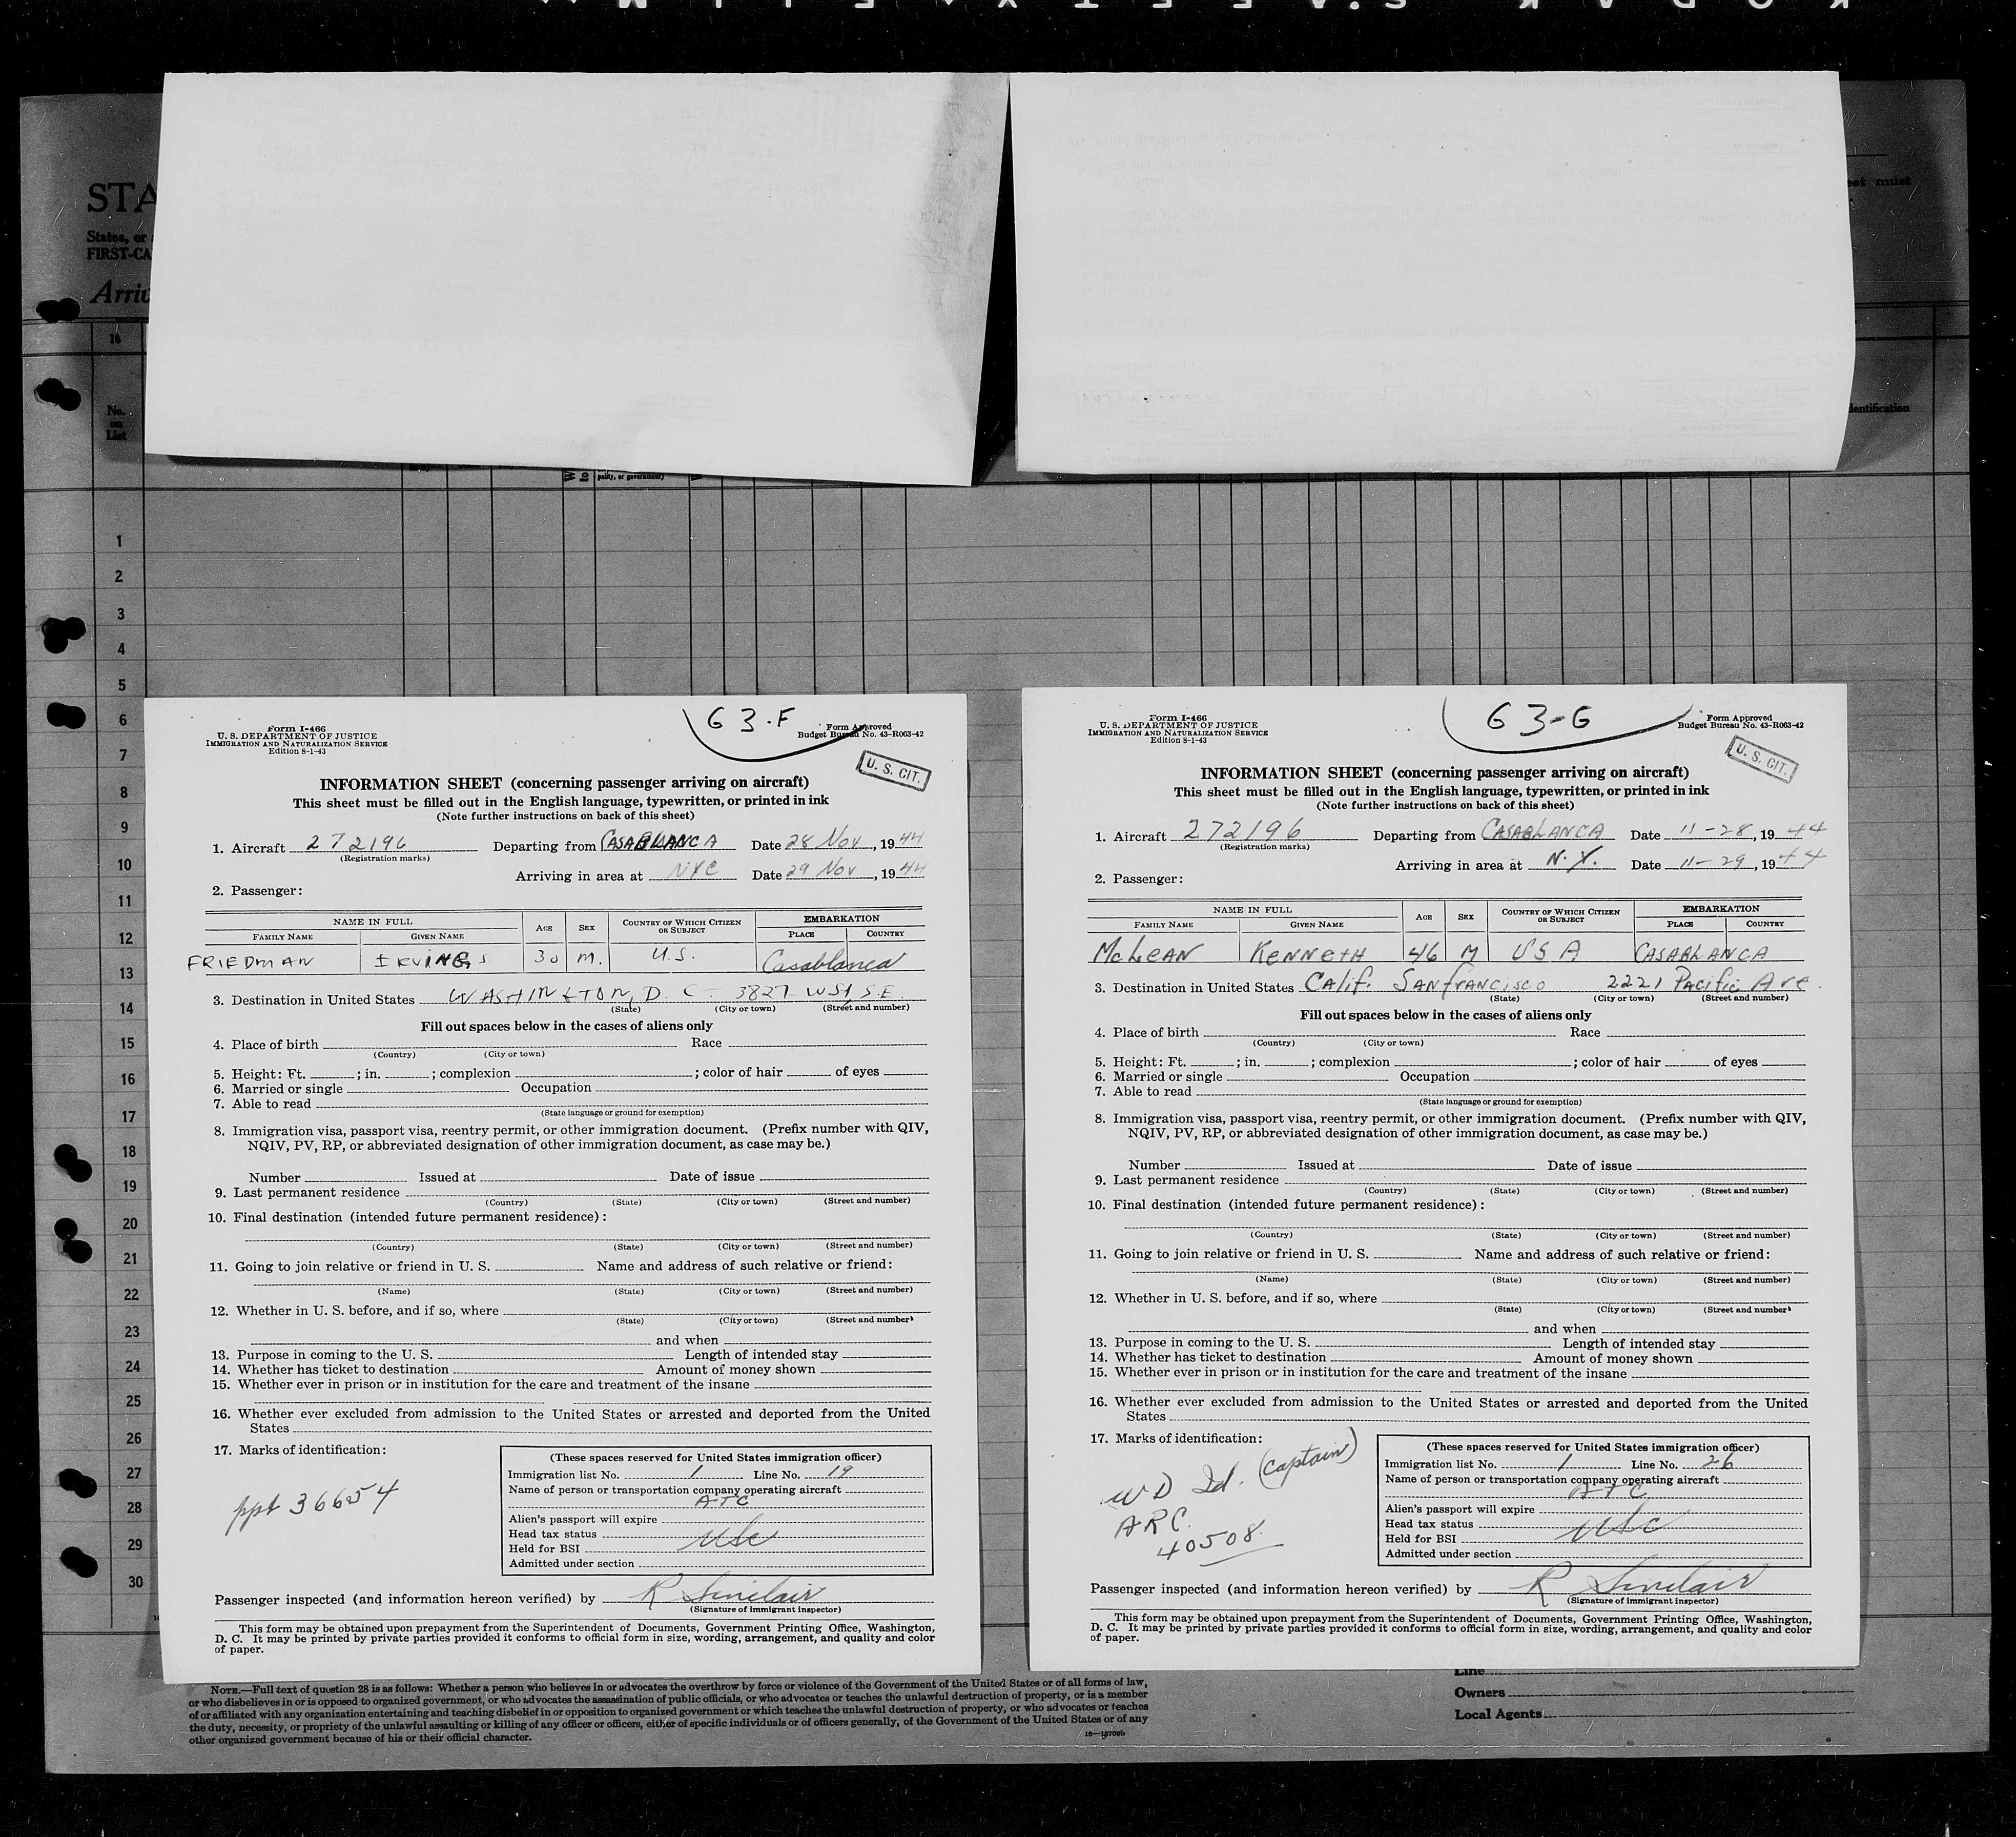 STA
States, or
FIRST-CA
Arriv
eet must
16
No.
on
List
dentification
pality, or government)
1
2
3
4
5
6
7
8
9
10
11
12
13
14
15
16
17
18
19
20
21
22
23
24
25
26
27
28
29
30
63-F
Form I-466
U. S. DEPARTMENT OF JUSTICE
IMMIGRATION AND NATURALIZATION SERVICE
Edition 8-1-43
Form Approved
Budget Bureau No. 43-R063-42
U. S. CIT.
INFORMATION SHEET (concerning passenger arriving on aircraft)
This sheet must be filled out in the English language, typewritten, or printed in ink
(Note further instructions on back of this sheet)
1. Aircraft 272196 Departing from CASABLANCA Date 28 Nov, 1944
(Registration marks)
Arriving in area at NYC Date 29 Nov, 1944
2. Passenger:
NAME IN FULL AGE SEX COUNTRY OF WHICH CITIZEN OR SUBJECT EMBARKATION
FAMILY NAME GIVEN NAME PLACE COUNTRY
FRIEDMAN IRVING S 30 M. U.S. Casablanca
3. Destination in United States WASHINGTON, D. C. 3827 W St, S.E.
(State) (City or town) (Street and number)
Fill out spaces below in the cases of aliens only
4. Place of birth Race
(Country) (City or town)
5. Height: Ft. ; in. ; complexion ; color of hair of eyes
6. Married or single Occupation
7. Able to read
(State language or ground for exemption)
8. Immigration visa, passport visa, reentry permit, or other immigration document. (Prefix number with QIV,
NQIV, PV, RP, or abbreviated designation of other immigration document, as case may be.)
Number Issued at Date of issue
9. Last permanent residence
(Country) (State) (City or town) (Street and number)
10. Final destination (intended future permanent residence):
(Country) (State) (City or town) (Street and number)
11. Going to join relative or friend in U. S. Name and address of such relative or friend:
(Name) (State) (City or town) (Street and number)
12. Whether in U. S. before, and if so, where
(State) (City or town) (Street and number)
and when
13. Purpose in coming to the U. S. Length of intended stay
14. Whether has ticket to destination Amount of money shown
15. Whether ever in prison or in institution for the care and treatment of the insane
16. Whether ever excluded from admission to the United States or arrested and deported from the United
States
17. Marks of identification:
ppt 36654
(These spaces reserved for United States immigration officer)
Immigration list No. 1 Line No. 19
Name of person or transportation company operating aircraft
ATC
Alien's passport will expire
Head tax status USC
Held for BSI
Admitted under section
Passenger inspected (and information hereon verified) by R Sinclair
(Signature of immigrant inspector)
This form may be obtained upon prepayment from the Superintendent of Documents, Government Printing Office, Washington,
D. C. It may be printed by private parties provided it conforms to official form in size, wording, arrangement, and quality and color
of paper.
63-G
Form I-466
U. S. DEPARTMENT OF JUSTICE
IMMIGRATION AND NATURALIZATION SERVICE
Edition 8-1-43
Form Approved
Budget Bureau No. 43-R063-42
U. S. CIT.
INFORMATION SHEET (concerning passenger arriving on aircraft)
This sheet must be filled out in the English language, typewritten, or printed in ink
(Note further instructions on back of this sheet)
1. Aircraft 272196 Departing from CASABLANCA Date 11-28, 1944
(Registration marks)
Arriving in area at N.Y. Date 11-29, 1944
2. Passenger:
NAME IN FULL AGE SEX COUNTRY OF WHICH CITIZEN OR SUBJECT EMBARKATION
FAMILY NAME GIVEN NAME PLACE COUNTRY
McLEAN KENNETH 46 M USA CASABLANCA
3. Destination in United States Calif. SANfrANCisco 2221 Pacific Ave.
(State) (City or town) (Street and number)
Fill out spaces below in the cases of aliens only
4. Place of birth Race
(Country) (City or town)
5. Height: Ft. ; in. ; complexion ; color of hair of eyes
6. Married or single Occupation
7. Able to read
(State language or ground for exemption)
8. Immigration visa, passport visa, reentry permit, or other immigration document. (Prefix number with QIV,
NQIV, PV, RP, or abbreviated designation of other immigration document, as case may be.)
Number Issued at Date of issue
9. Last permanent residence
(Country) (State) (City or town) (Street and number)
10. Final destination (intended future permanent residence):
(Country) (State) (City or town) (Street and number)
11. Going to join relative or friend in U. S. Name and address of such relative or friend:
(Name) (State) (City or town) (Street and number)
12. Whether in U. S. before, and if so, where
(State) (City or town) (Street and number)
and when
13. Purpose in coming to the U. S. Length of intended stay
14. Whether has ticket to destination Amount of money shown
15. Whether ever in prison or in institution for the care and treatment of the insane
16. Whether ever excluded from admission to the United States or arrested and deported from the United
States
17. Marks of identification:
WD Id. (Captain)
ARC.
40508.
(These spaces reserved for United States immigration officer)
Immigration list No. 1 Line No. 26
Name of person or transportation company operating aircraft
ATC
Alien's passport will expire
Head tax status USC
Held for BSI
Admitted under section
Passenger inspected (and information hereon verified) by R Sinclair
(Signature of immigrant inspector)
This form may be obtained upon prepayment from the Superintendent of Documents, Government Printing Office, Washington,
D. C. It may be printed by private parties provided it conforms to official form in size, wording, arrangement, and quality and color
of paper.
NOTE.—Full text of question 28 is as follows: Whether a person who believes in or advocates the overthrow by force or violence of the Government of the United States or of all forms of law,
or who disbelieves in or is opposed to organized government, or who advocates the assassination of public officials, or who advocates or teaches the unlawful destruction of property, or is a member
of or affiliated with any organization entertaining and teaching disbelief in or opposition to organized government or which teaches the unlawful destruction of property, or who advocates or teaches
the duty, necessity, or propriety of the unlawful assaulting or killing of any officer or officers, either of specific individuals or of officers generally, of the Government of the United States or of any
other organized government because of his or their official character.
Line
Owners
Local Agents